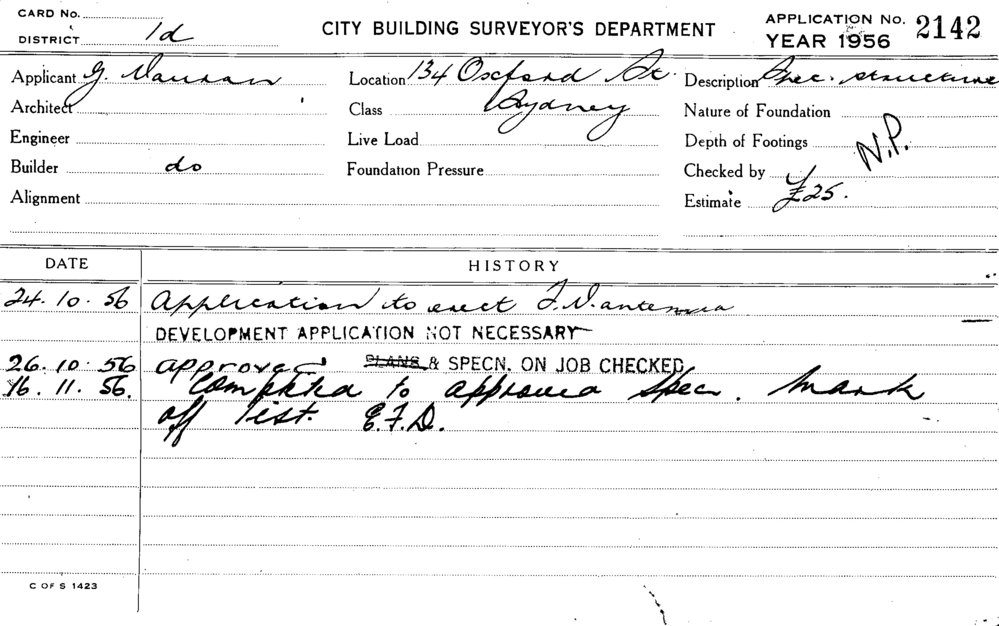 CARD NO.
DISTRICT 1d
CITY BUILDING SURVEYOR'S DEPARTMENT
APPLICATION NO. 2142
YEAR 1956
Applicant G.
Location 134 Oxford St.
Description Spec. structure
Architect
Class Sydney
Nature of Foundation
Engineer
Live Load
Depth of Footings
N.P.
Builder do
Foundation Pressure
Checked by
Alignment
Estimate £25.
DATE
HISTORY
24.10.56 Application to erect T.V. antenna
DEVELOPMENT APPLICATION NOT NECESSARY
26.10.56 approved PLANS & SPECN. ON JOB CHECKED
16.11.56. Completed to approved Spec. Mark
off list. E.F.D.
C OF S 1423